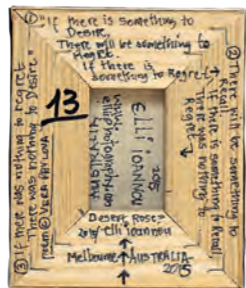 ① "If there is something to
Desire,
There will be something to
Regret.
If there is
something to Regret,
② There will be something to
Recall.
If there is something to Recall,
There was nothing to
Regret
③ If there was nothing to Regret
There was nothing to Desire"
poem © VERA PAVLOVA
13
Elli ioannou
2015
www.
ellii photography.com
AUSTRALIA
Desert Rose?
2015 elli ioannou
Melbourne AUSTRALIA-
2015